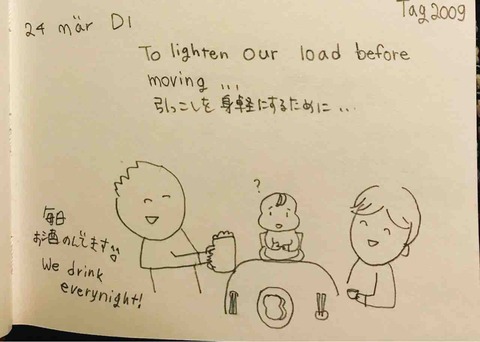 24 mär DI
Tag 2009
To lighten our load before
moving ...
引っこしを身軽にするために...
?
毎日
お酒のんでます
We drink
everynight!